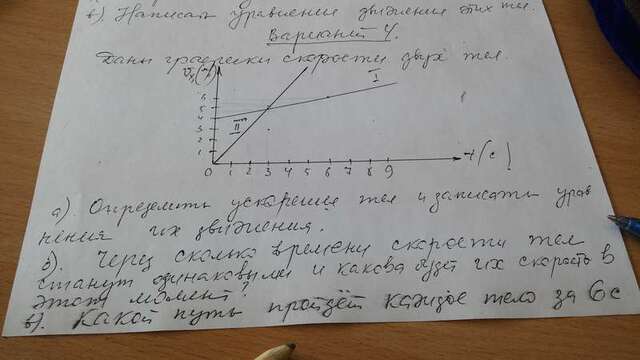 в). Написать уравнения движения этих тел.
Вариант 4.
Даны графики скорости двух тел.
I
6
5
4
3
2
1
II
0 1 2 3 4 5 6 7 8 9
t(с)
а). Определить ускорение тел и записать урав
нения их движения.
б). Через сколько времени скорости тел
станут одинаковыми и какова будет их скорость в
этот момент?
в). Какой путь пройдёт каждое тело за 6с